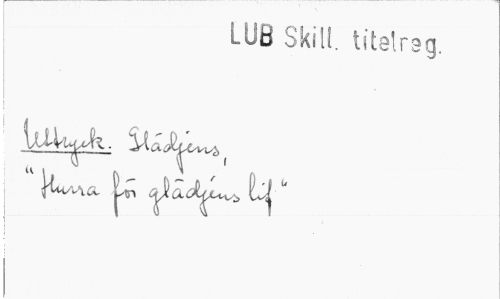 LUB Skill. titelreg.
Uttryck. Glädjens,
"Hurra för glädjens lif"